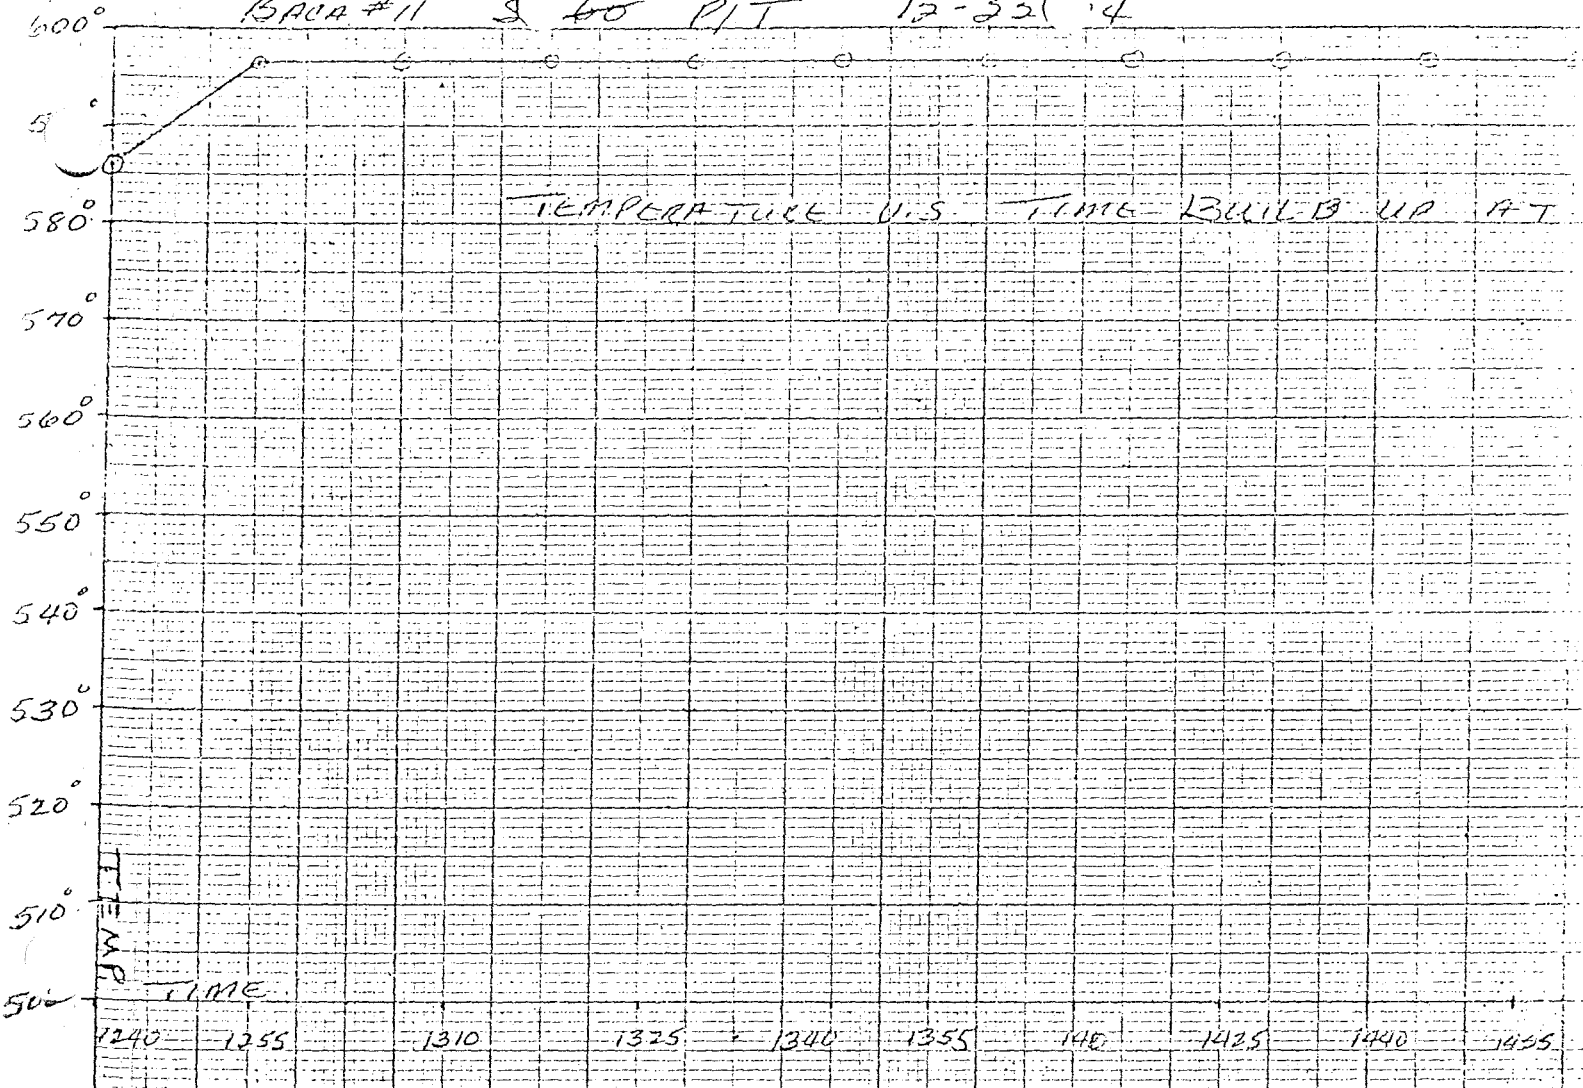 BACA #11 P/T
600°
580°
TEMPERATURE V.S TIME BUILD UP AT
570°
560°
550°
540°
530°
520°
510°
TEMP.
TIME
1240 1255 1310 1325 1340 1355 1425 1440 1455